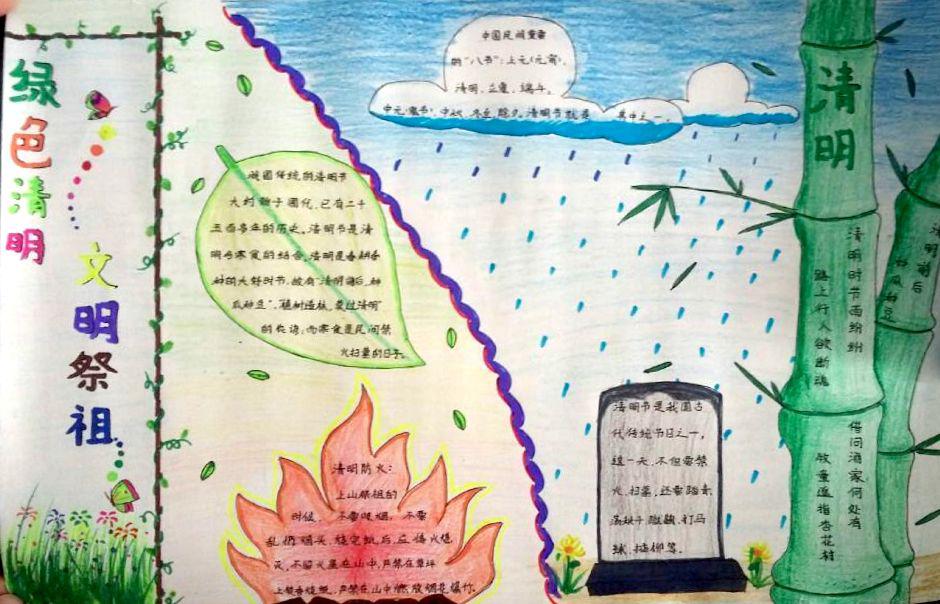 绿色清明
文明祭祖
我国传统的清明节
大约始于周代,已有二千
五百多年的历史。清明节是清
明与寒食的结合,清明是春耕春
种的大好时节,故有“清明前后,种
瓜种豆”,“植树造林,莫过清明”
的农谚;而寒食是民间禁
火扫墓的日子。
清明防火:
上山祭祖的
时候,不要吸烟,不要
乱扔烟头,烧完纸后,应待火熄
灭,不留火星在山中,严禁在草坪
上焚香烧纸,严禁在山中燃放烟花爆竹。
中国民间重要
的“八节”:上元(元宵)、
清明、立夏、端午、
中元(鬼节)、中秋、冬至、除夕,清明节就是
其中之一。
清明节是我国古
代传统节日之一,
这一天,不但要禁
火、扫墓,还要踏青、
荡秋千、蹴鞠、打马
球、插柳等。
清明
清明时节雨纷纷
路上行人欲断魂
借问酒家何处有
牧童遥指杏花村
清明前后
种瓜种豆